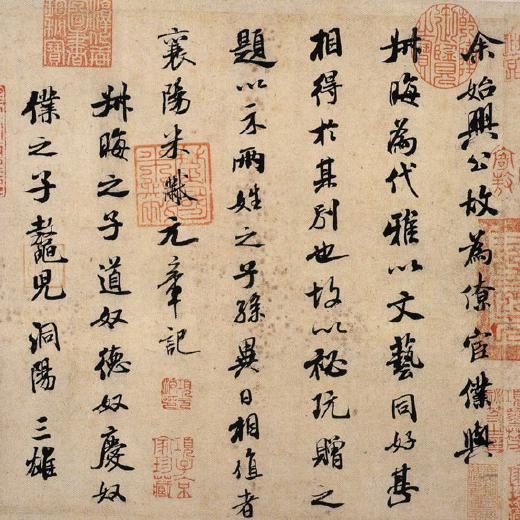 余始興公故為僚官僕與
叔晦為代雅以文藝同好甚
相得於其別也故以秘玩贈之
題以示兩姓之子孫異日相值者
襄陽米黻元章記
叔晦之子道奴德奴慶奴
僕之子鼇兒洞陽三雄
項子京
家珍藏